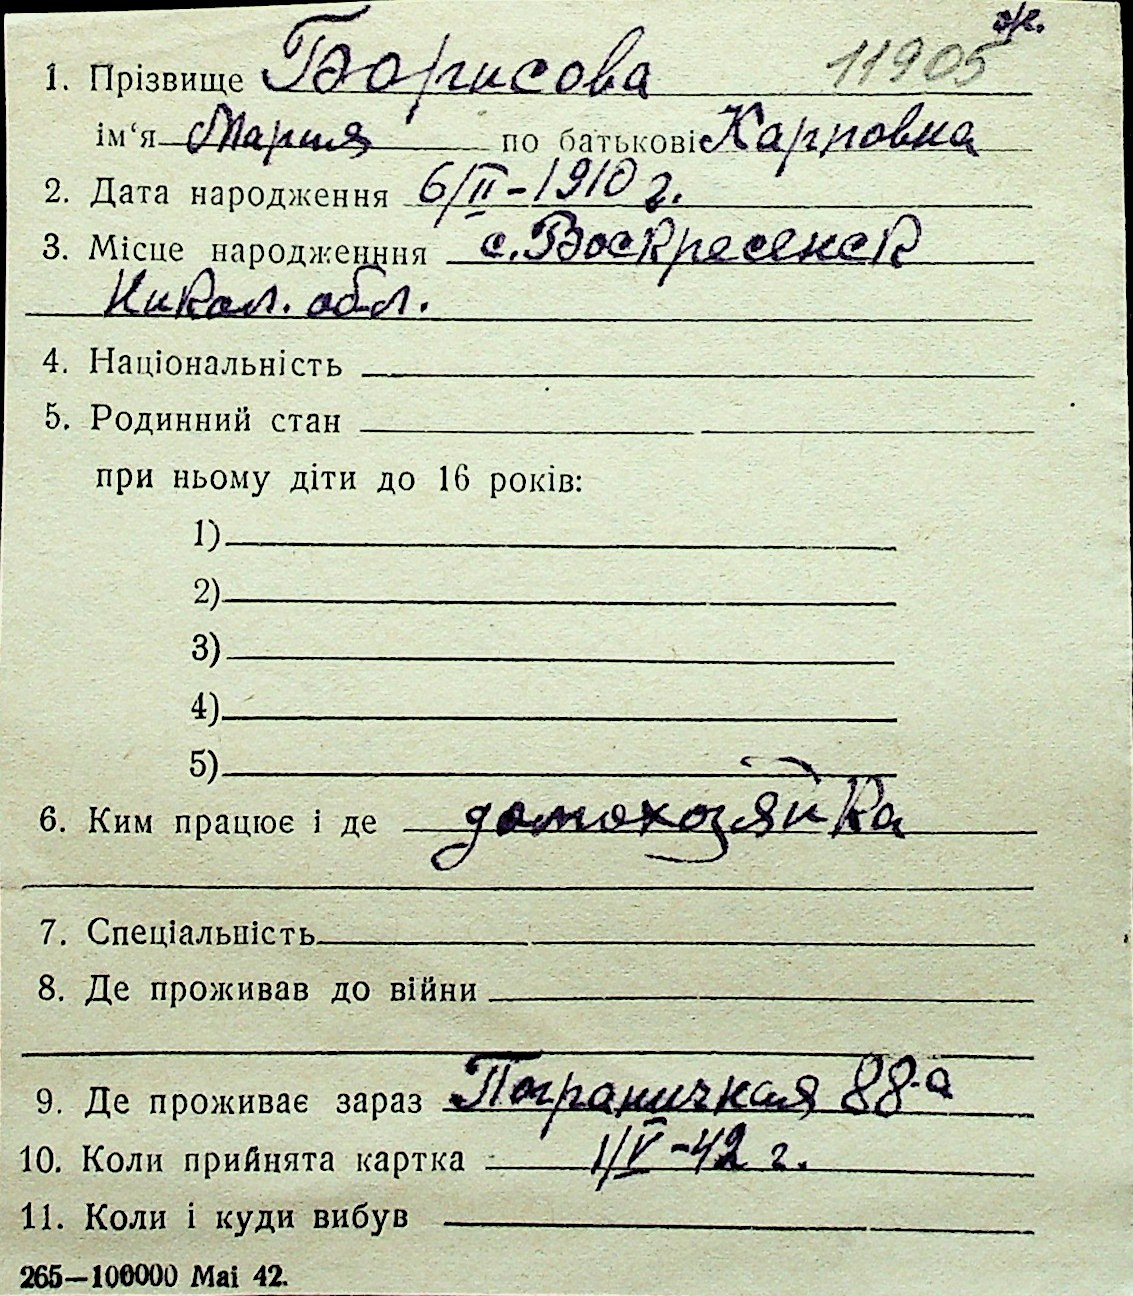 ж.
11905
1. Прізвище Борисова
ім‘я Мария по батькові Карповна
2. Дата народження 6/II-1910 г.
3. Місце народженння с. Воскресенск
Никол. обл.
4. Національність
5. Родинний стан
при ньому діти до 16 років:
1)
2)
3)
4)
5)
6. Ким працює і де домохозяйка
7. Спеціальність
8. Де проживав до війни
9. Де проживає зараз Пограничная 88-а
10. Коли прийнята картка 1/V-42 г.
11. Коли і куди вибув
265—100000 Mai 42.